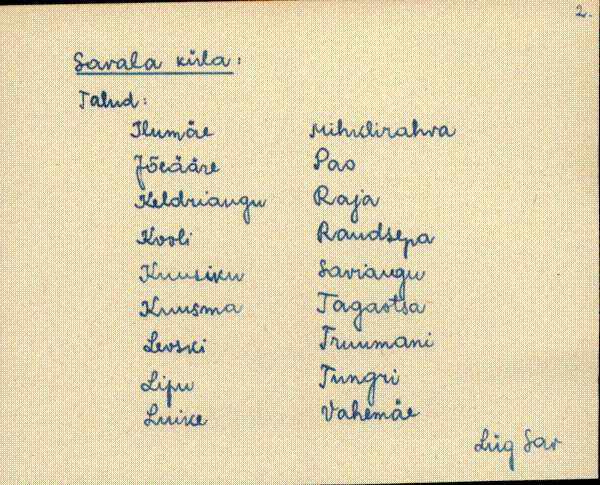 2.
Savala küla:
Talud:
Ilumäe
Jõeääre
Keldriaugu
Kooli
Kuusiku
Kuusma
Levski
Lipu
Luike
Mihklirahva
Pao
Raja
Raudsepa
Saviaugu
Tagaotsa
Truumani
Tungri
Vahemäe
Lüg Sav